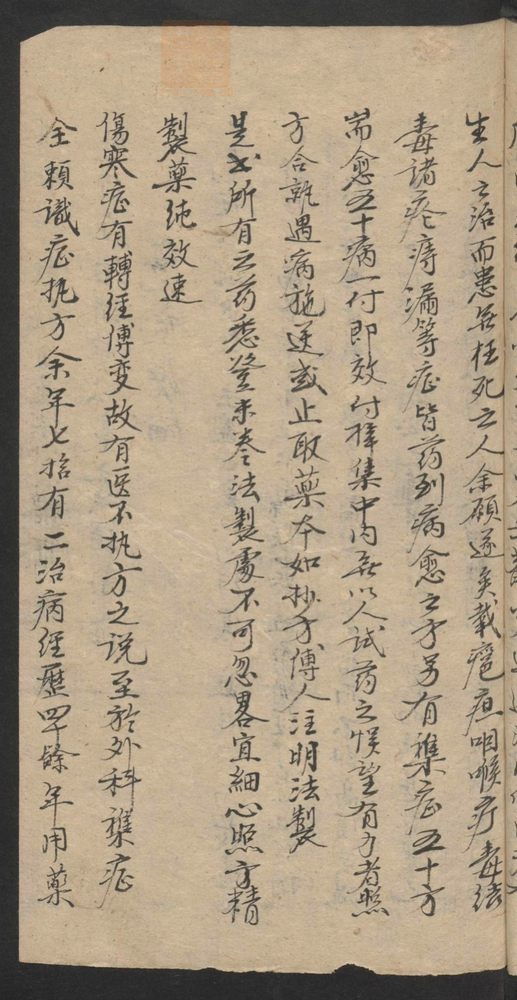 生人之治而患無枉死之人余願遂矣載癰疽咽喉疔毒結
毒諸瘡痔漏等症皆药到病愈之方另有雜症五十方
耑愈五十病一付即效付梓集中内無以人試药之悮望有力者照
方合就遇病施送或止取藥本如抄方傅人注明法製
是書所有之药悉登末卷法製處不可忽畧宜細心照方精
製藥純效速
傷寒症有轉经傅变故有医不执方之说至於外科雜症
全賴識症执方余年七拾有二治病经歷四十餘年用藥